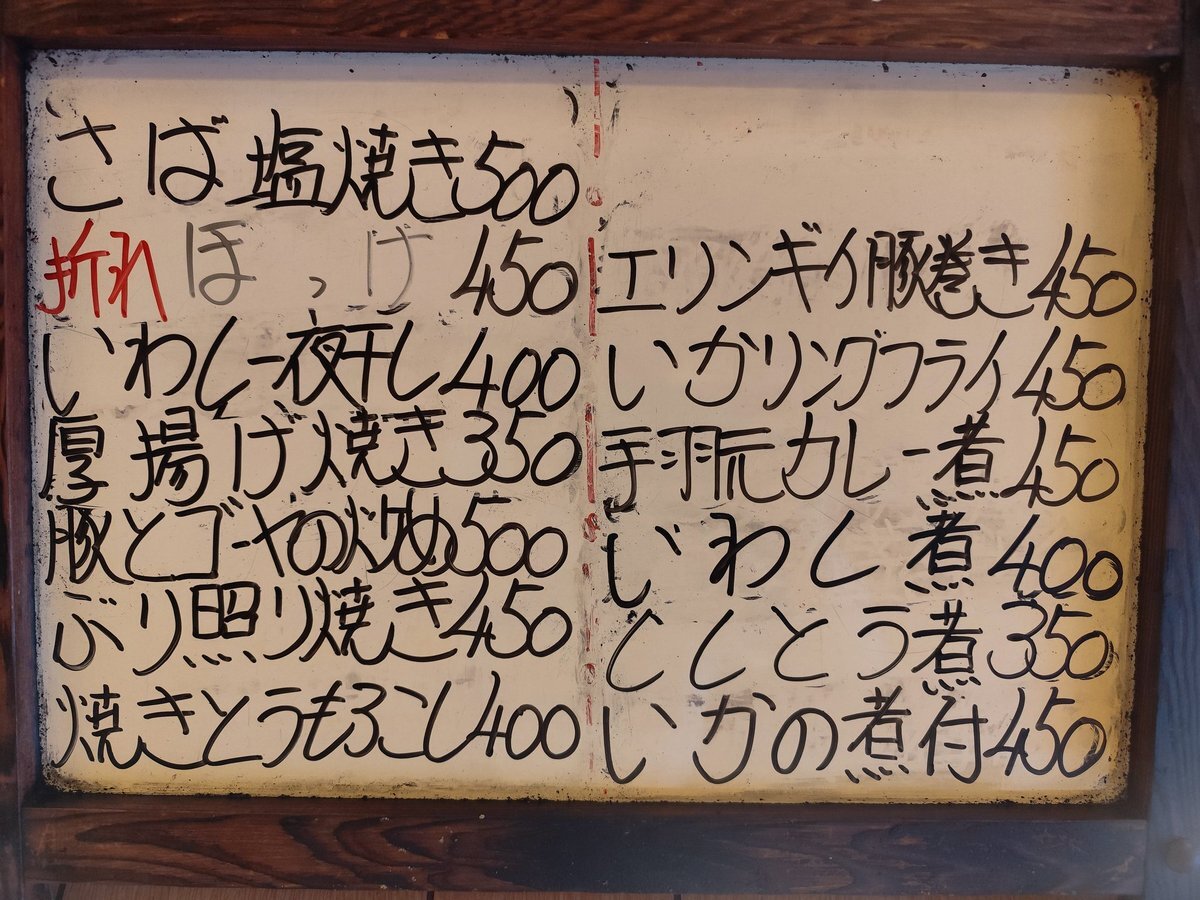 さば塩焼き500
折れほっけ450
いわし一夜干し400
厚揚げ焼き350
豚とゴーヤの炒め500
ぶり照り焼き450
焼きとうもろこし400
エリンギイ豚巻き450
いかリングフライ450
手羽元カレー煮450
いわし煮400
ししとう煮350
いかの煮付450